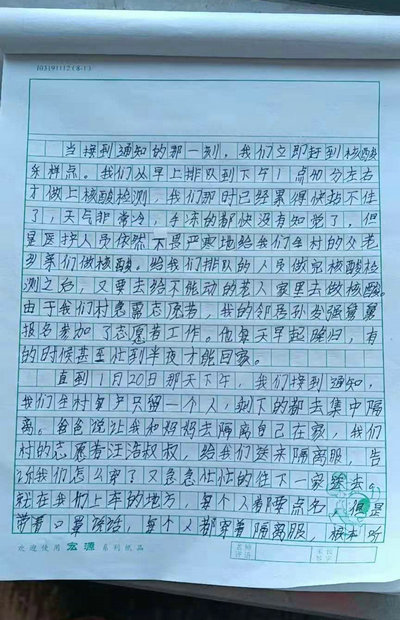 103191112(8-1)
当接到通知的那一刻，我们立即赶到核酸
采样点。我们从早上排队到下午1点40分左右
才做上核酸检测，我们那时已经累得快站不住
了，天气非常冷，手冻的都快没有知觉了，但
是医护人员依然不畏严寒地给我们全村的父老
乡亲们做核酸。给我们排队的人员做完核酸检
测之后，又要去给不能动的老人家里去做核酸。
由于我们村急需志愿者，我的邻居孙发强舅舅
报名参加了志愿者工作。他每天早起晚归，有
的时候甚至忙到半夜才能回家。
直到1月20日那天下午，我们接到通知，
我们全村每户只留一个人，剩下的都去集中隔
离。爸爸说让我和妈妈去隔离自己在家，我们
村的志愿者汪浩叔叔，给我们送来隔离服，告
诉我们怎么穿了又急急忙忙的往下一家跑去。
就在我们上车的地方，每个人都要点名，但是
带着口罩，每个人都穿着隔离服，根本听
欢迎使用 宏源 系列纸品
老师评语
家长签字